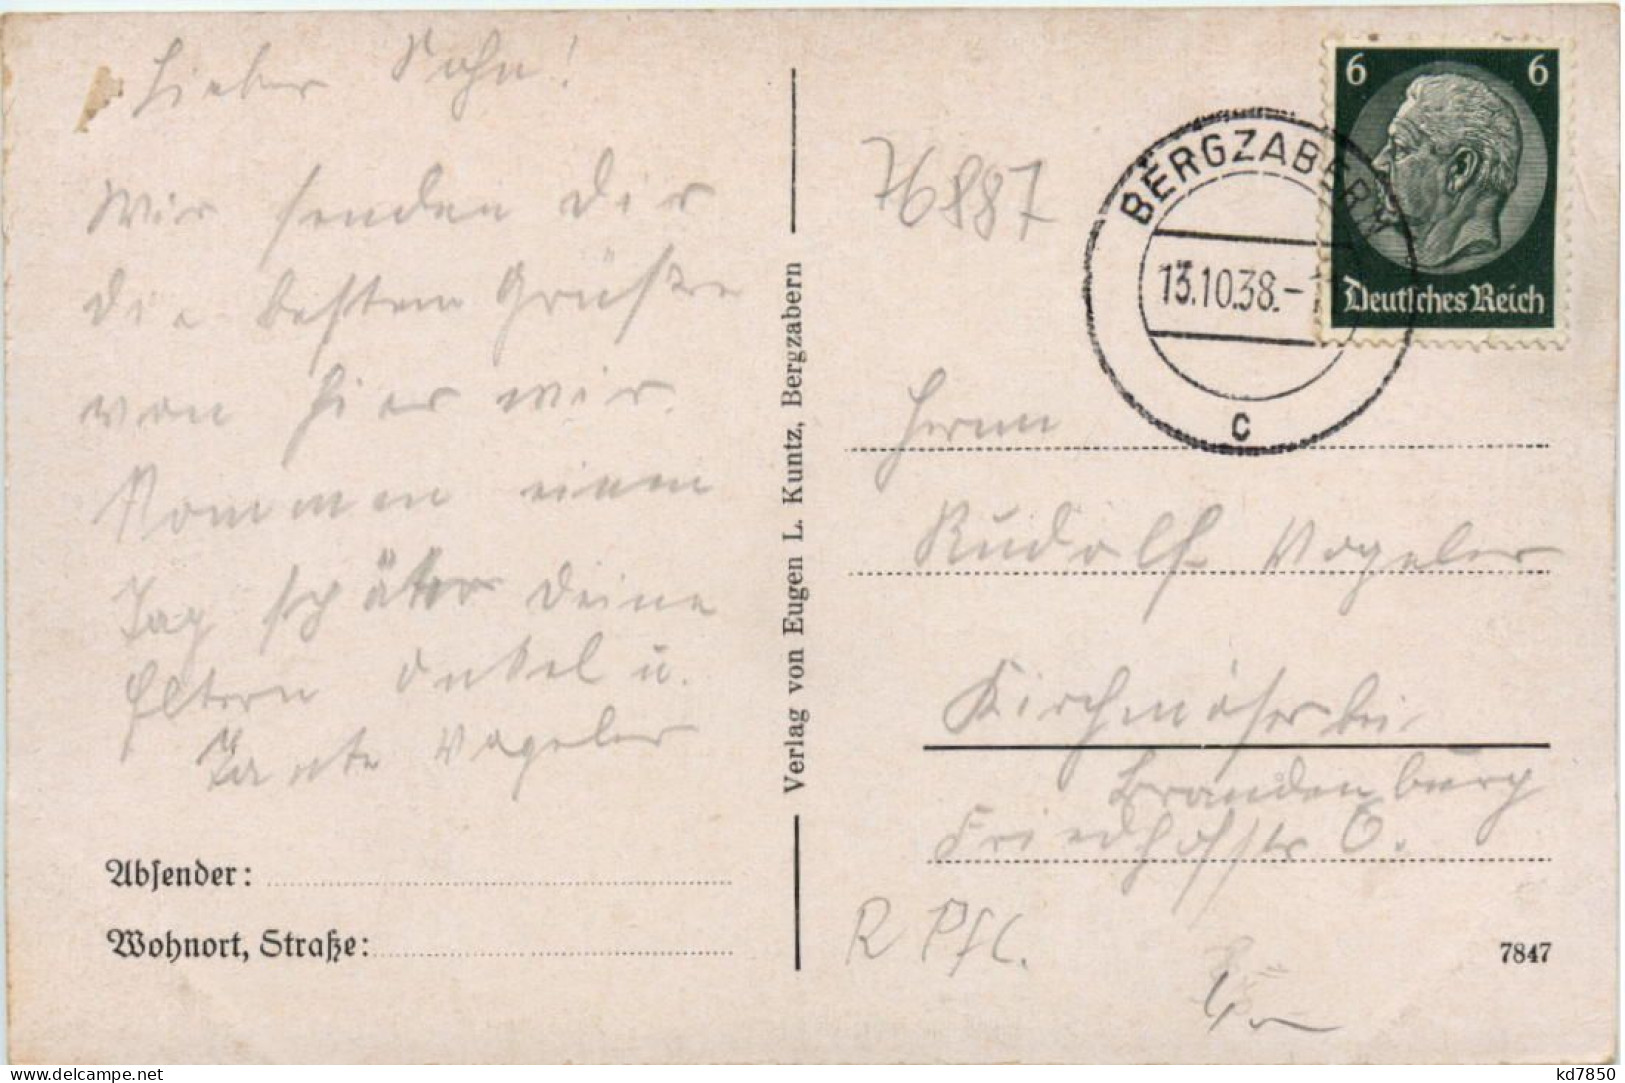 Lieber Sohn!
Wir senden Dir
die besten Grüße
von hier wir
kommen einen
Tag später Deine
Eltern Onkel u.
Tante Vogeler
Absender:
Wohnort, Straße:
Verlag von Eugen L. Kuntz, Bergzabern
76887
BERGZABERN
13.10.38.-1
c
6 6
Deutsches Reich
Herrn
Rudolf Vogeler
Kirchmöser bei
Brandenburg
Friedhofstr 6.
R Pfl.
7847
www.delcampe.net
kd7850